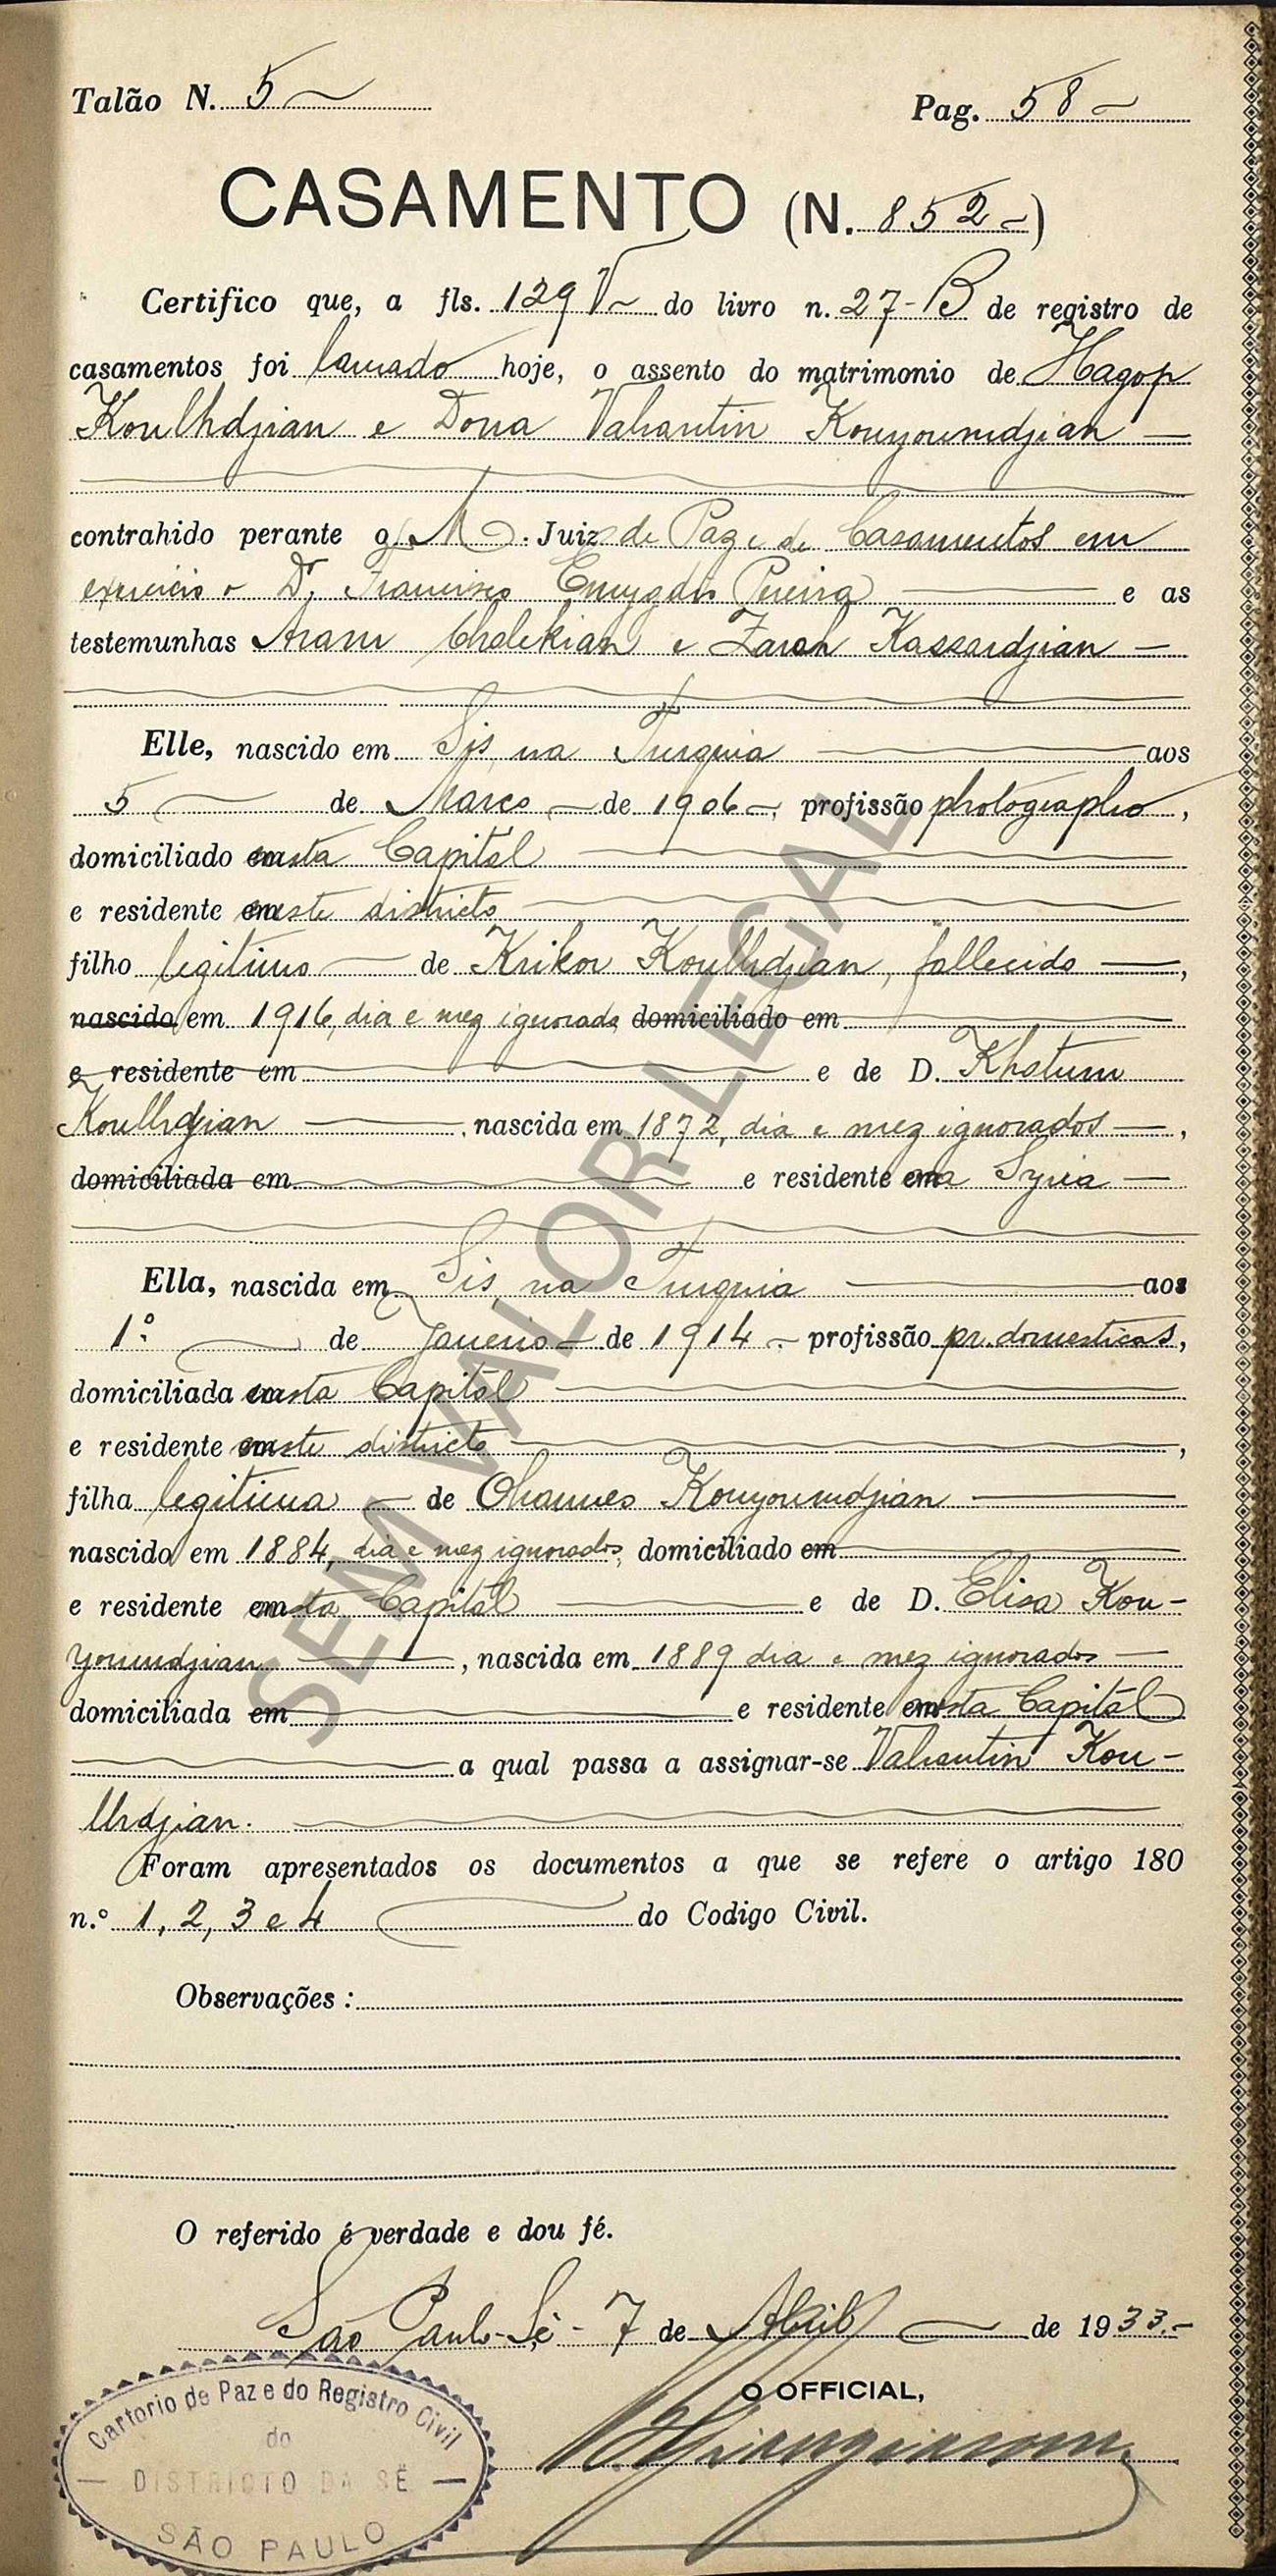 Talão N. 5 Pag. 58
CASAMENTO (N. 852)
Certifico que, a fls. 129 V do livro n. 27-B de registro de
casamentos foi lavrado hoje, o assento do matrimonio de Hagop
Koulhdjian e Dona Valrantin Kouyoumdjian
contrahido perante o M. Juiz de Paz e de Casamentos em
exercicio o Dr. Francisco Emygdio Pereira e as
testemunhas Aram Cholekian e Zareh Kassardjian
Elle, nascido em Sis, na Turquia aos
5 de Março de 1906, profissão photographo,
domiciliado nesta Capital
e residente neste districto
filho legitimo de Krikor Koulhdjian, fallecido,
nascido em 1916, dia e mez ignorado domiciliado em
e residente em e de D. Khatum
Koulhdjian, nascida em 1872, dia e mez ignorados,
domiciliada em e residente na Syria
Ella, nascida em Sis, na Turquia aos
1º de Janeiro de 1914 profissão pr. domesticas,
domiciliada nesta Capital
e residente neste districto,
filha legitima de Ohannes Kouyoumdjian
nascido em 1884, dia e mez ignorados, domiciliado em
e residente nesta Capital e de D. Elisa Kou-
youmdjian, nascida em 1889 dia e mez ignorados
domiciliada em e residente nesta Capital
a qual passa a assignar-se Valrantin Kou-
lhdjian.
Foram apresentados os documentos a que se refere o artigo 180
n.º 1, 2, 3 e 4 do Codigo Civil.
Observações :
O referido é verdade e dou fé.
São Paulo-Sé-7 de Abril de 1933.
O OFFICIAL,
Cartorio de Paz e do Registro Civil
do
DISTRICTO DA SÉ
SÃO PAULO
SEM VALOR LEGAL